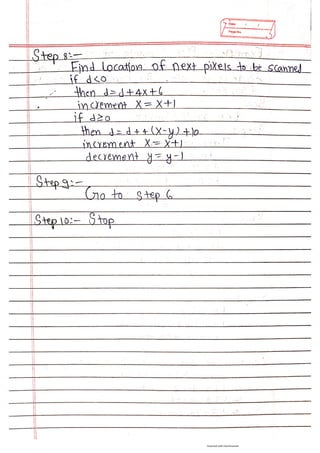 Step 8:-
Find Location of next pixels to be scanned
if d<0
then d=d+4x+6
increment X=X+1
if d≥0
then d=d+4(X-y)+10
increment X=X+1
decrement y=y-1
Step 9:-
Go to step 6
Step 10:- Stop